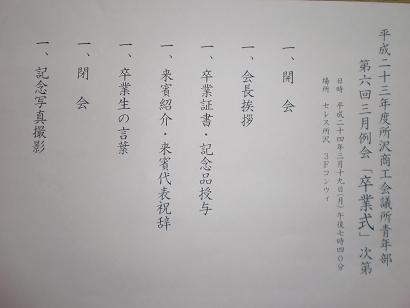 平成二十三年度所沢商工会議所青年部
第六回三月例会「卒業式」次第
日時 平成二十四年三月十九日(月)午後七時四〇分
場所 セレス所沢 3Fコンウィ
一、開　会
一、会長挨拶
一、卒業証書・記念品授与
一、来賓紹介・来賓代表祝辞
一、卒業生の言葉
一、閉　会
一、記念写真撮影